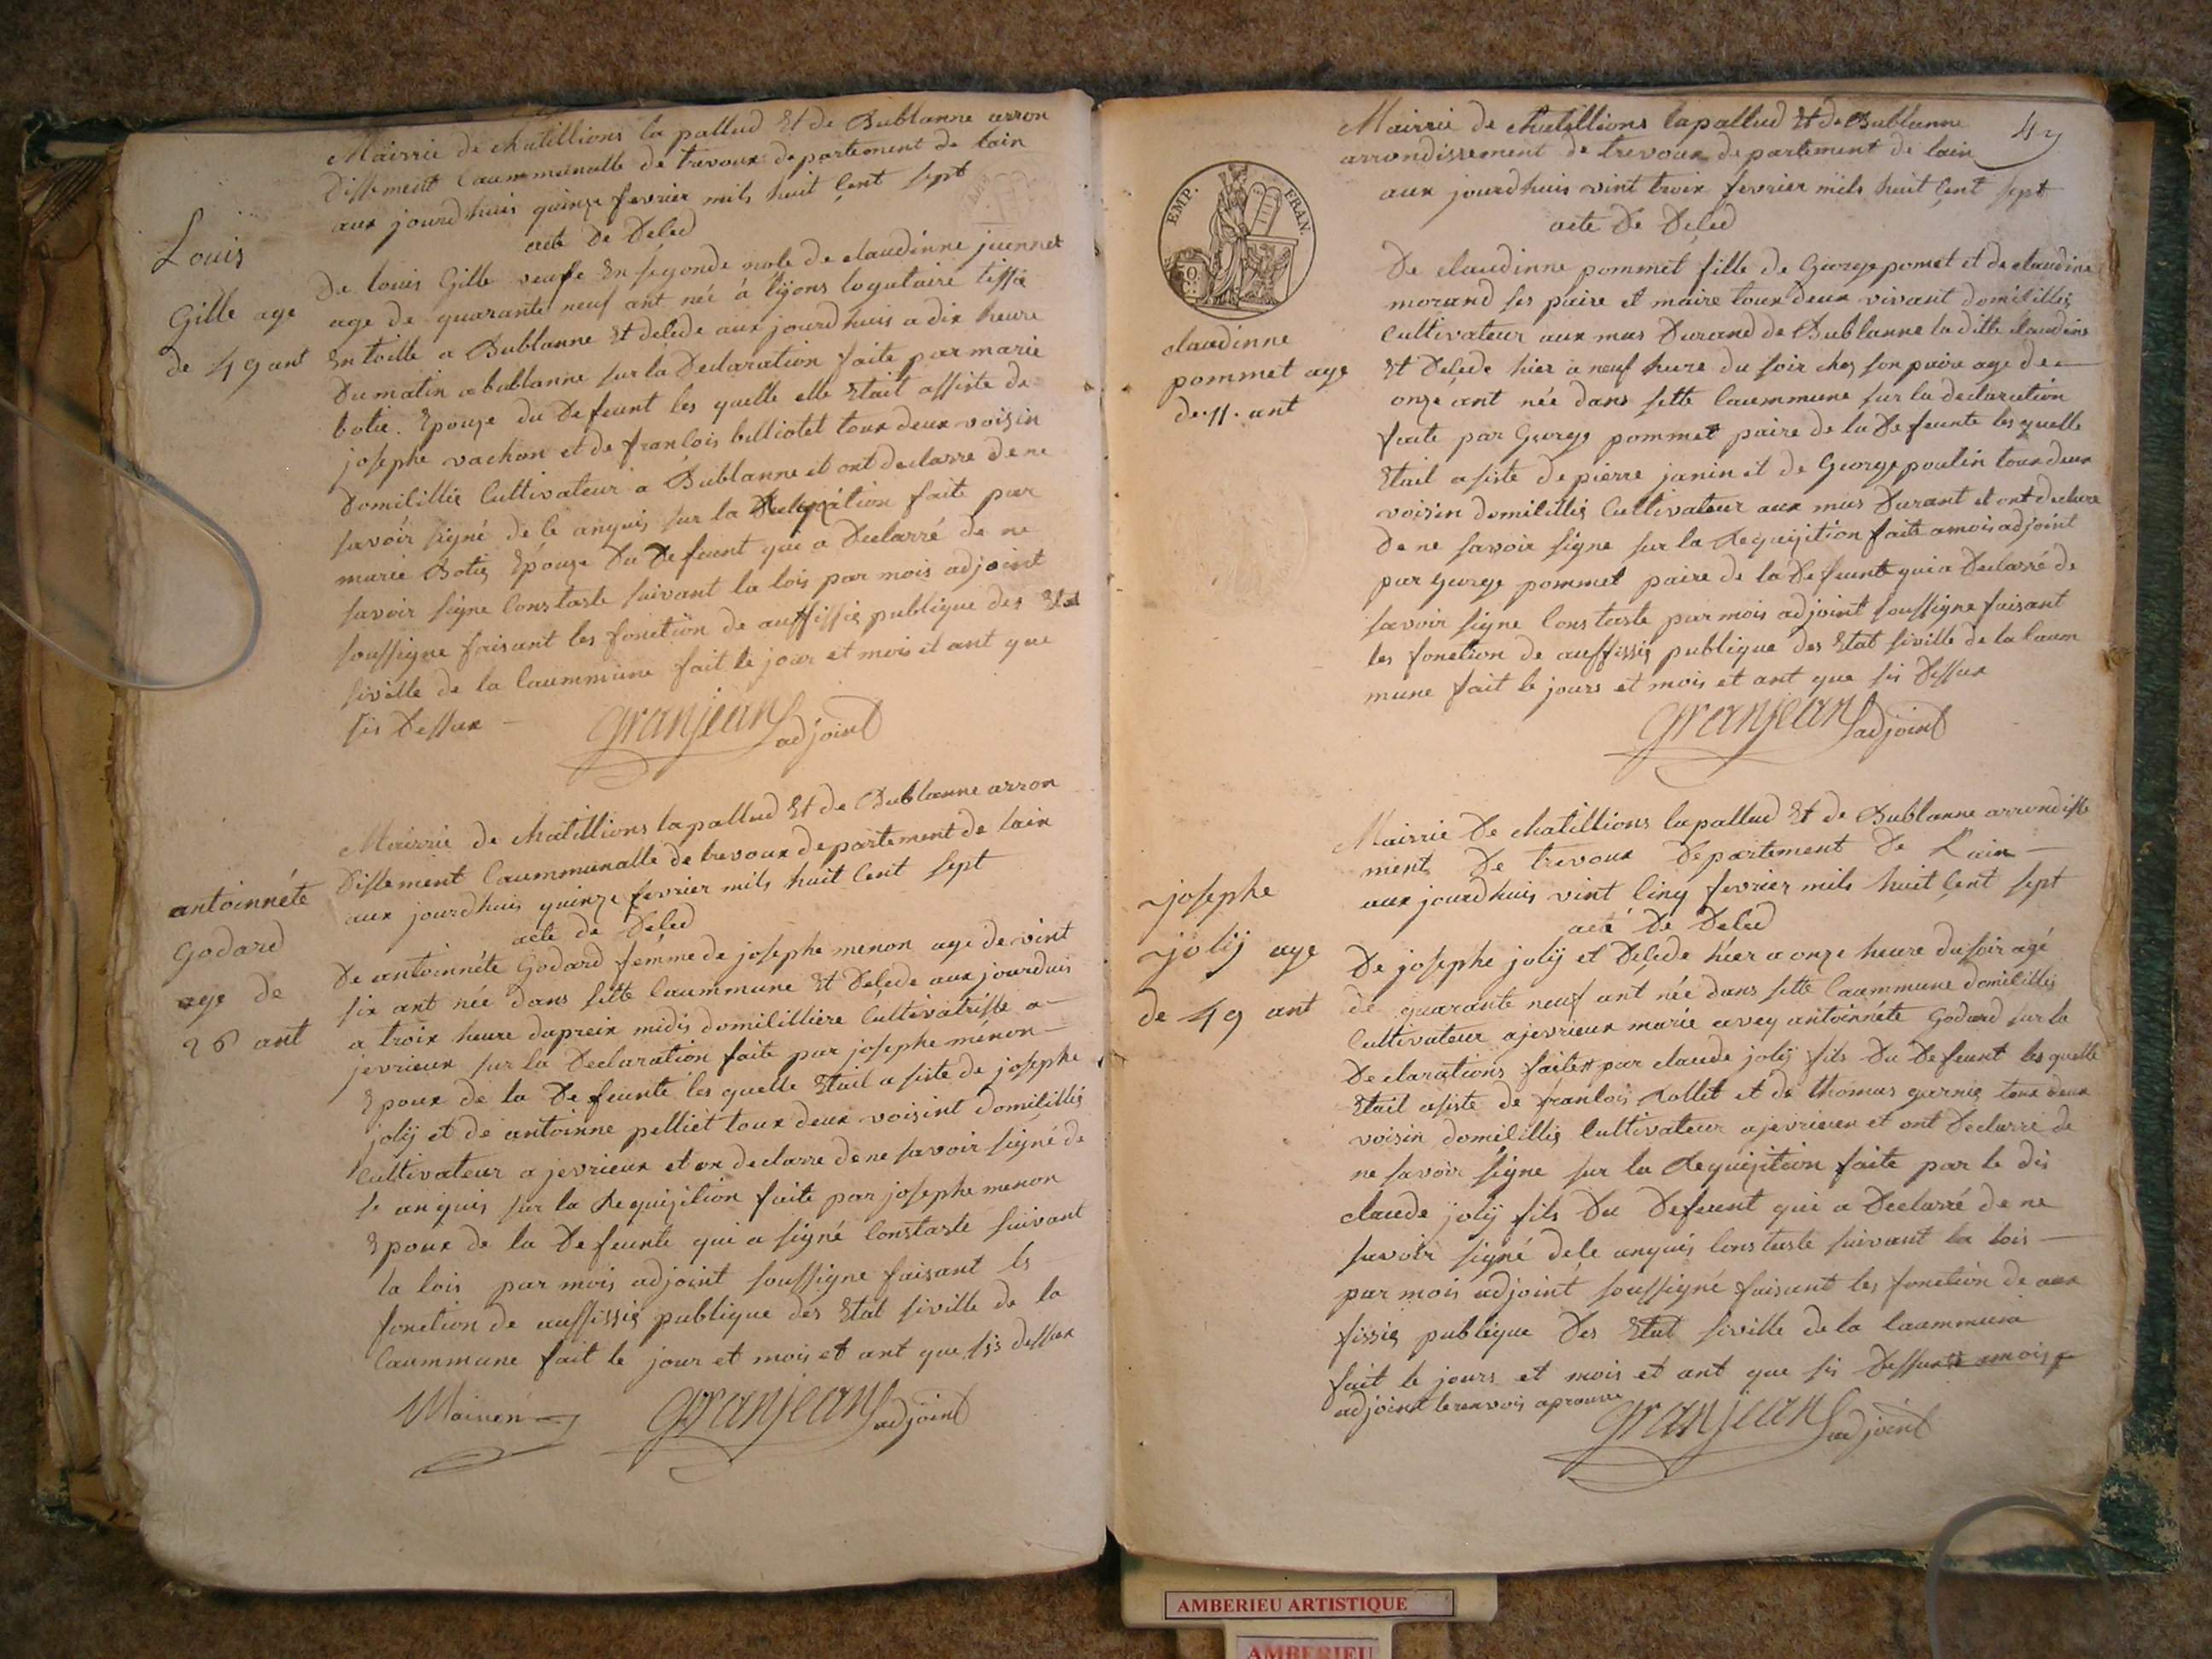 Mairrie de chatillions la pallud Et de Bublanne arron
dissement Caummunalle de trevoux departement de lain
aux jourdhuis quinze fevrier mils huit Cent sept
acte De Deced
Louis
Gille age
de 49 ant
De louis Gille veufe En segonde nole de claudinne juennet
age de quarante neuf ant née á lÿons logataire tissie
En toille a Bublanne Et decede aux jourdhuis a dix heure
Du matin a bublanne sur la Declaration faite par marie
botie. Epouze du Defeunt les quelle elle Etait assiste de
josephe vachon et de francois billiotet toux deux voisin
Domicillie Cultivateur a Bublanne et ont declarre de ne
savoir signé de le anquis sur la Requizition faite par
marie Botie Epouze Du Defeunt qui a Declarré de ne
savoir signe Constaste suivant la lois par mois adjoint
soussigne faisant les fonction de auffissie publique des Etat
siville de la Caummune fait le jour et mois et ant que
sis Dessux
Granjean adjoint
Mairrie de chatillions la pallud Et de Bublanne arron
dissement Caummunalle de trevoux departement de lain
aux jourdhuis quinze fevrier mils huit Cent sept
acte de Deced
antoinnéte
Godard
age de
26 ant
De antoinnéte Godard fémme de josephe menon age de vint
six ant née dans sette Caummune Et Decede aux jourduis
a troix heure dapreix midis domicilliere Cultivatrisse a
jevrieux sur la Declaration faite par josephe ménon
Epoux de la Defeunte les quelle Etait a siste de josephe
jolij et de antoinne pelliet toux deux voisint domicillis
Cultivateur a jevrieux et on declarre de ne savoir signé de
le anquis sur la Requizition faite par josephe menon
Epoux de la Defeunte qui a signé Constaste suivant
la lois par mois adjoint soussigne faisant les
fonction de auffissie publique des Etat siville de la
Caummune fait le jour et mois et ant que sis dessux
Mainén Granjean adjoint
Mairrie de chatillions la pallud Et de Bublanne
arrondissement de trevoux departement de lain
aux jourdhuis vint troix fevrier mils huit Cent sept
acte De Deced
EMP. FRAN.
claudinne
pommet age
de 11 ant
De claudinne pommet fille de George pomet et de claudine
morand ses paire et maire toux deux vivant domicillie
Cultivateur aux mas Durand de Bublanne la ditte claudine
Et Decede hier a neuf heure du soir chez son paire age de
onze ant née dans sette Caummune sur la declaration
faite par George pommet paire de la Defeunte les quelle
Etait a siste de pierre janin et de George poulin toux deux
voisin domicillie Cultivateur aux mas Durant et ont declare
de ne savoir signe sur la Requizition faite a mois adjoint
par George pommet paire de la Defeunte qui a Declarré de
savoir signe Constaste par mois adjoint soussigne faisant
les fonction de auffissie publique des Etat siville de la Caum
mune fait le jours et mois et ant que sis Dessux
Granjean adjoint
Mairrie De chatillions la pallud Et de Bublanne arrondisse
ment De trevoux Departement De Lain
aux jourdhuis vint Cinq fevrier mils huit Cent sept
acte De Deced
josephe
jolij age
de 49 ant
De josephe jolij et Decede hier a onze heure du soir agé
de quarante neuf ant née dans sette Caummune domicillie
Cultivateur a jevrieux marie avey antoinnéte Godard sur la
Declarations faite par claude jolij fils Du Defeunt les quelle
Etait asiste de francois Rollet et de thomas garnie toux deux
voisin domicillie Cultivateur a jevrieux et ont Declarre de
ne savoir signe sur la Requizition faite par le dis
claude jolij fils Du Defeunt qui a Declarré de ne
savoir signé de le anquis Constaste suivant la lois
par mois adjoint soussigné faisant les fonction de aux
fissie publique Des Etat siville de la Caummune
fait le jours et mois et ant que sis Dessux a mois
adjoint le renvois aprouve
Granjean adjoint
AMBERIEU ARTISTIQUE
AMBERIEU